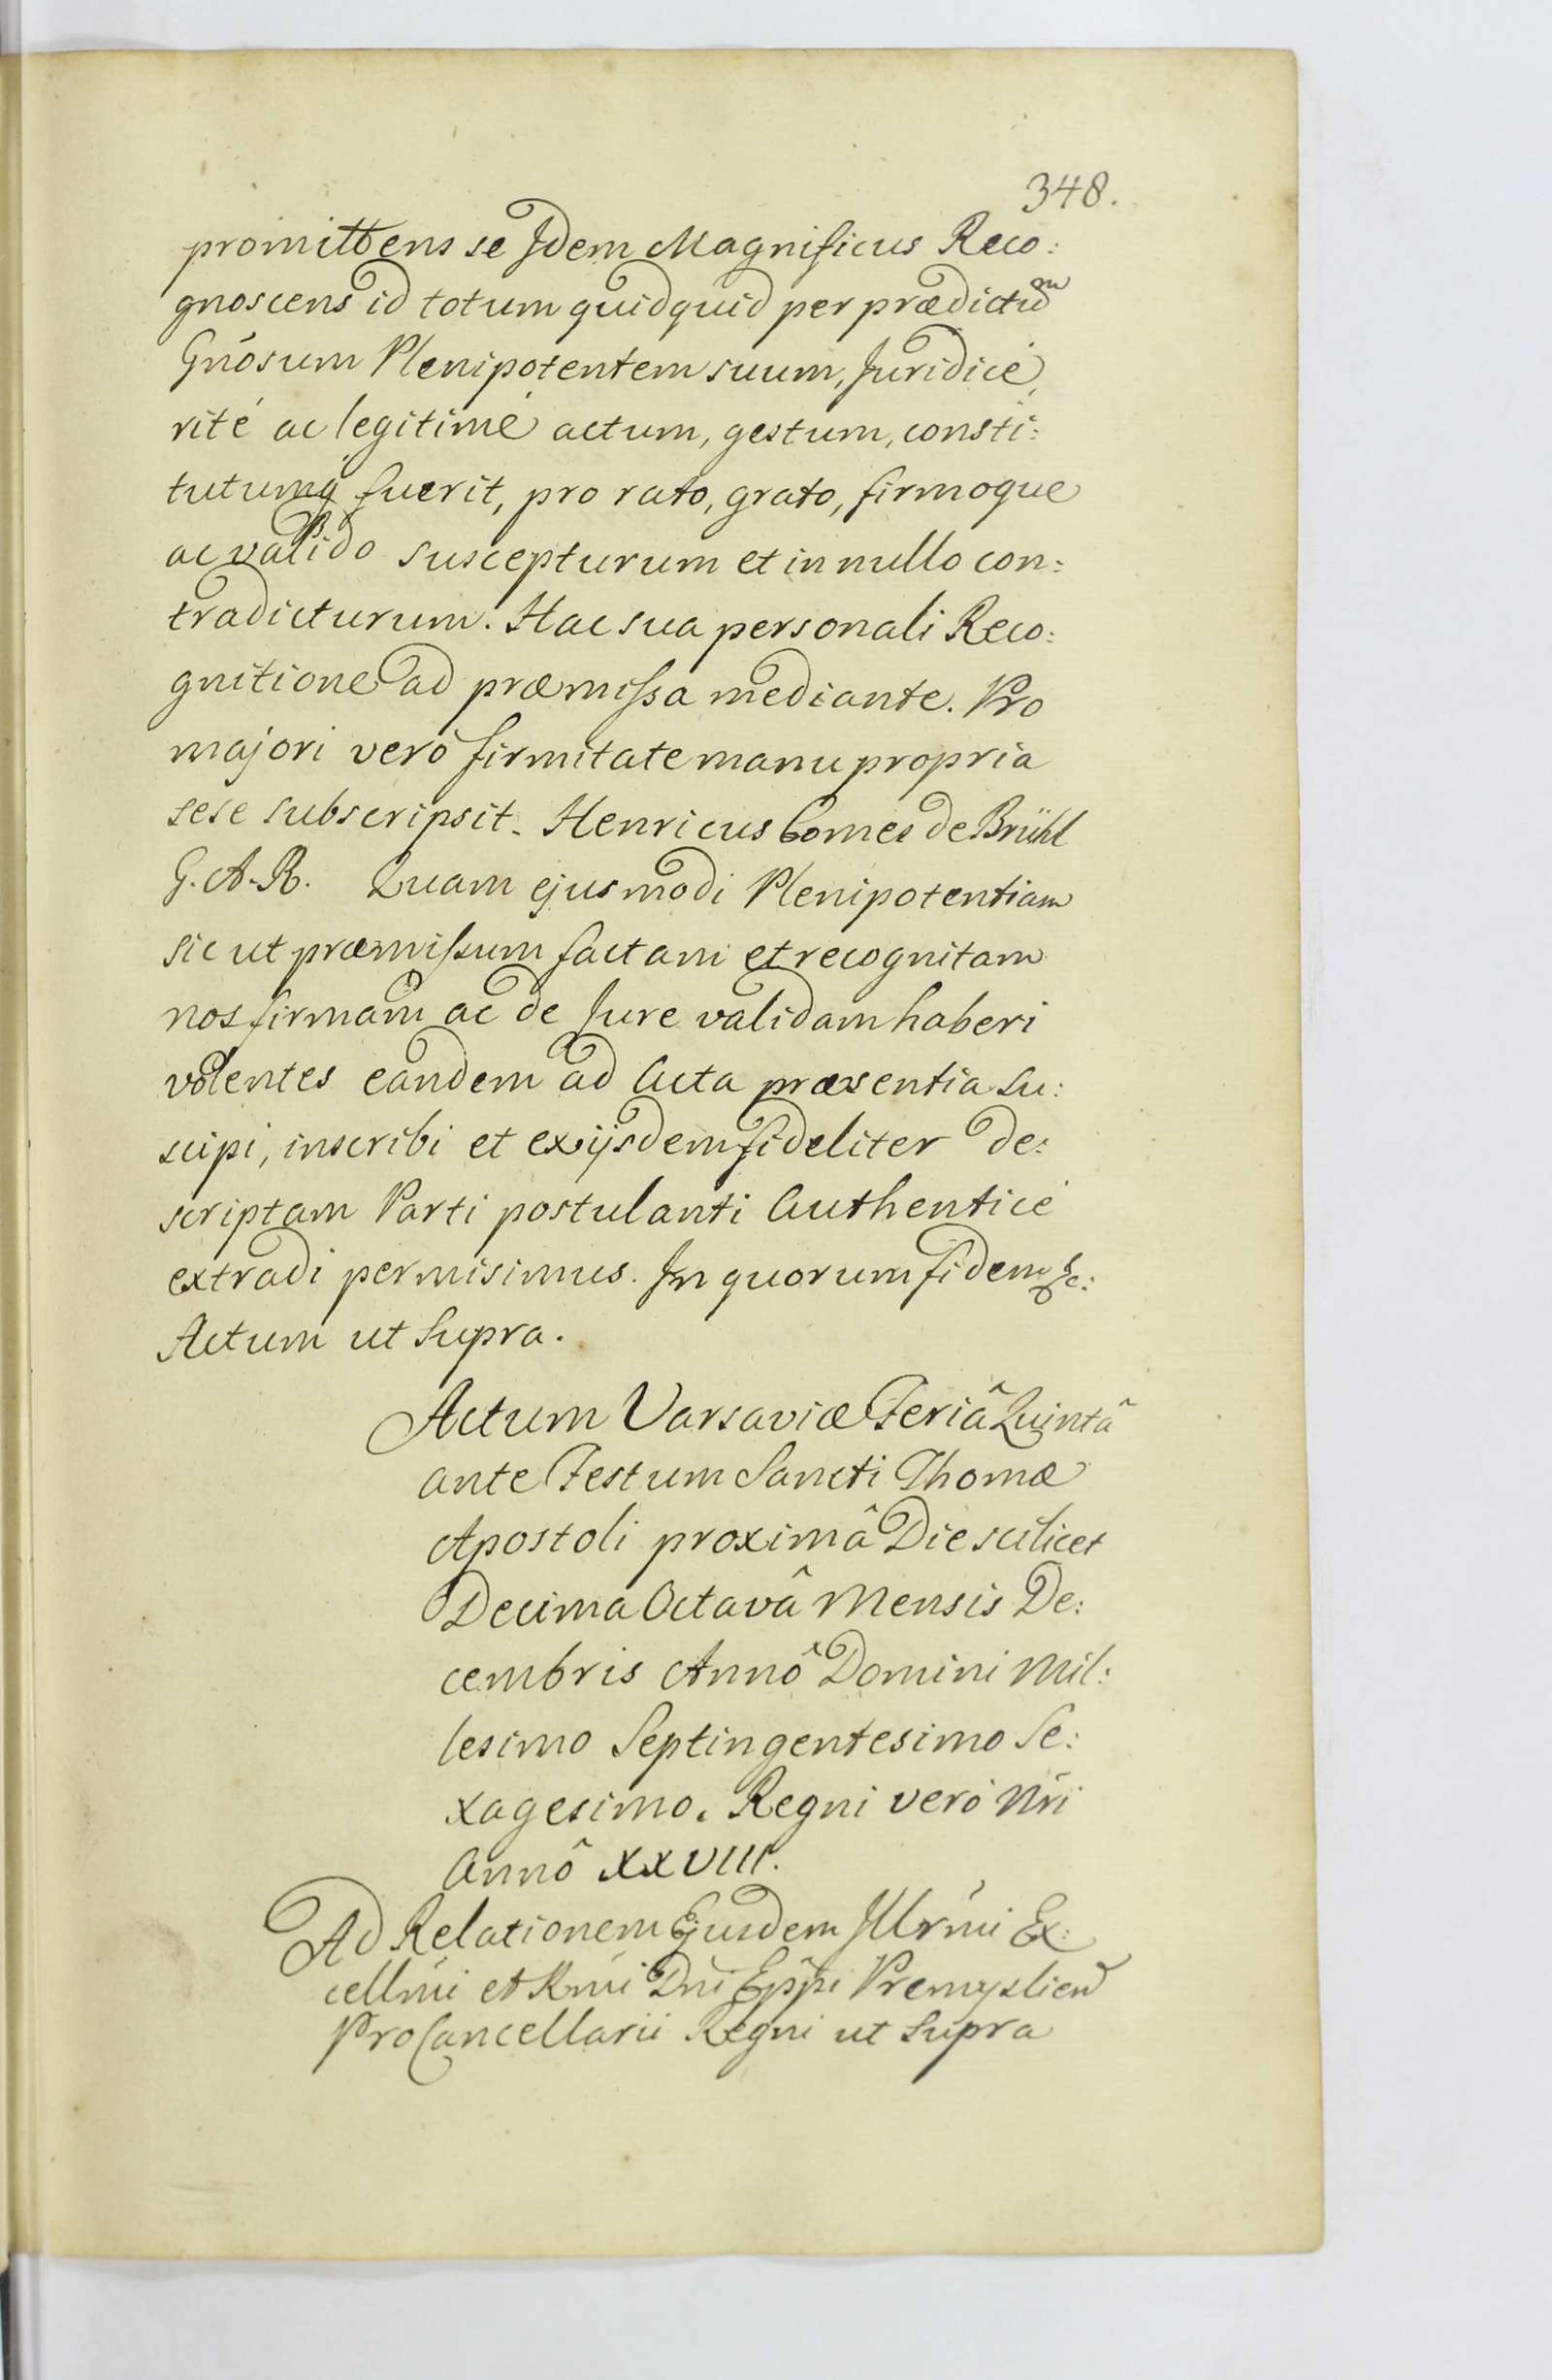 348.
promittens se Idem Magnificus Reco:
gnoscens id totum quidquid per prædictū
Gnōsum Plenipotentem suum, Juridicè,
ritè ac legitimè actum, gestum, consti:
tutumq́ fuerit, pro rato, grato, firmoque
ac valido suscepturum et in nullo con:
tradicturum. Hac sua personali Reco:
gnitione ad præmissa mediante. Pro
majori verò firmitate manu propria
sese subscripsit. Henricus Comes de Brühl
G. A. R. Quam ejusmodi Plenipotentiam
sic ut præmissum factam et recognitam
nos firmam ac de Jure validam haberi
volentes eandem ad Acta præsentia su:
scipi, inscribi et ex ijsdem fideliter de:
scriptam Parti postulanti Authenticè
extradi permisimus. In quorum fidem &c:
Actum ut supra.
Actum Varsaviæ Feriâ Quintâ
ante Festum Sancti Thomæ
Apostoli proximâ Die scilicet
Decima Octavâ Mensis De:
cembris Annô Domini Mil:
lesimo Septingentesimo Se:
xagesimo. Regni verò Nri
Annô XXVIII.
Ad Relationem Ejusdem Illrmi Ex:
cellmi et Rmi Dni Eppi Premyslien
ProCancellarii Regni ut supra